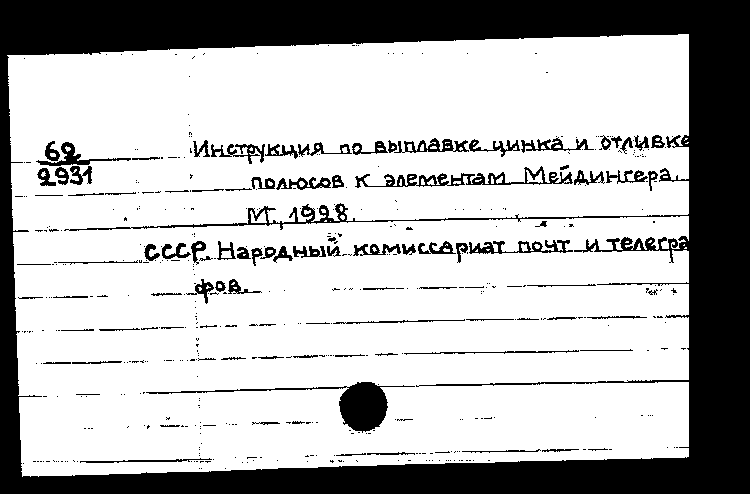 62
2931
Инструкция по выплавке цинка и отливке
полюсов к элементам Мейдингера.
М., 1928.
СССР. Народный комиссариат почт и телегра
фов.